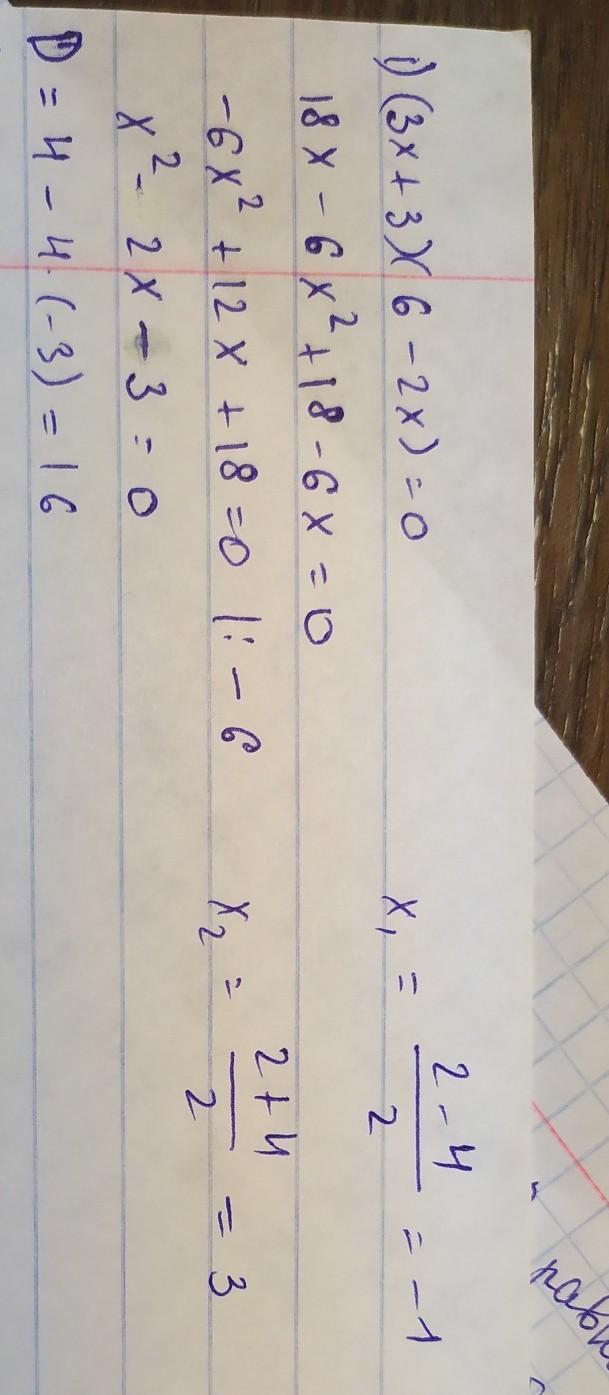 1) (3x+3)(6-2x)=0
18x-6x²+18-6x=0
-6x²+12x+18=0 |:-6
x²-2x-3=0
D=4-4·(-3)=16
x₁ = (2-4)/2 = -1
x₂ = (2+4)/2 = 3